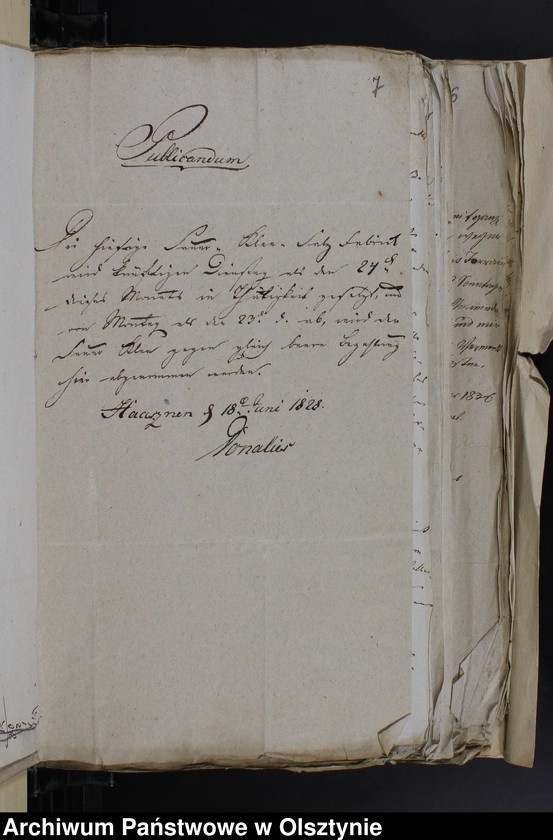 7
Publicandum
Die hiesige Sauer-Klee-Salz Fabrick
wird künftigen Dinstag als den 24.
dieses Monats in Thätigkeit gesetzt, und
von Montag als den 23. d. ab, wird der
Sauer Klee gegen gleich baare Bezahlung
hier abgenommen werden.
Haasznen d 18. Juni 1828.
Donalies
6
und mir
1826
Archiwum Państwowe w Olsztynie